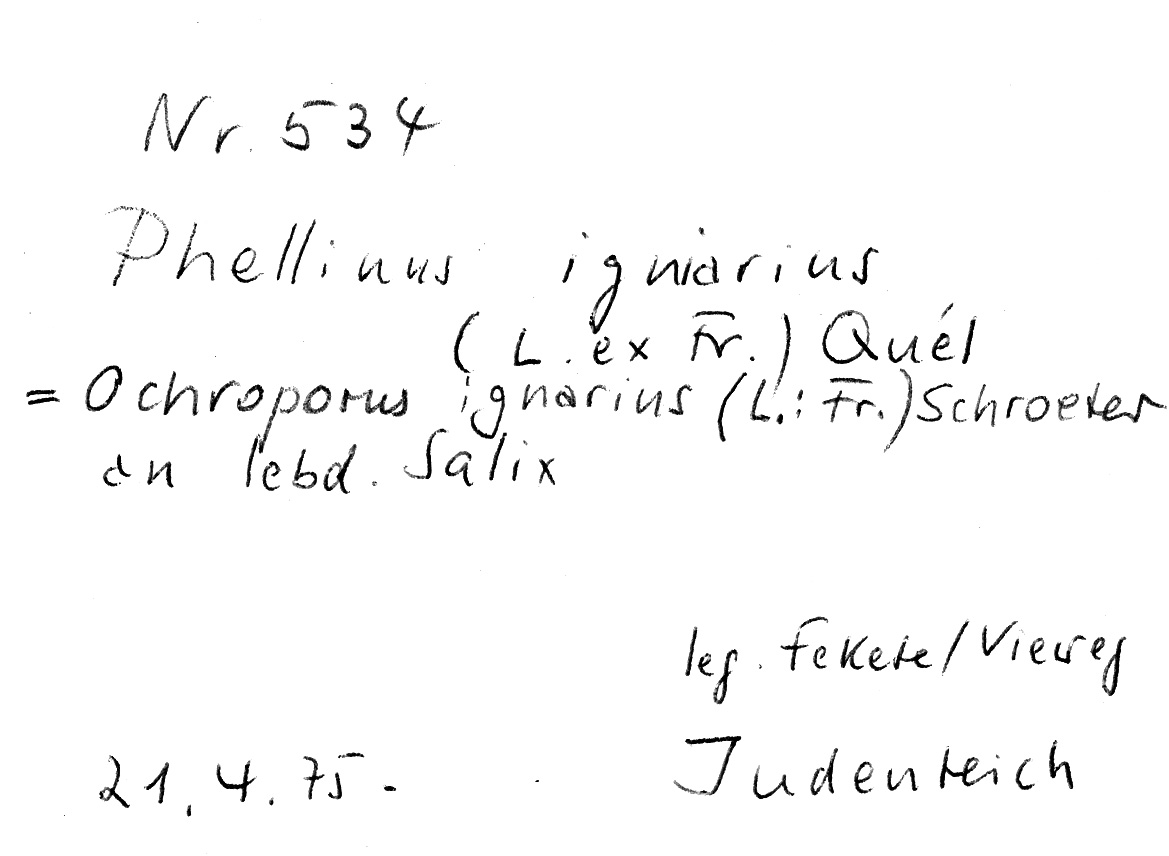 Nr. 534
Phellinus igniarius
(L. ex Fr.) Quél
= Ochroporus ignarius (L.: Fr.) Schroeter
an lebd. Salix
leg. Fekete/Vieweg
21.4.75. Judenteich